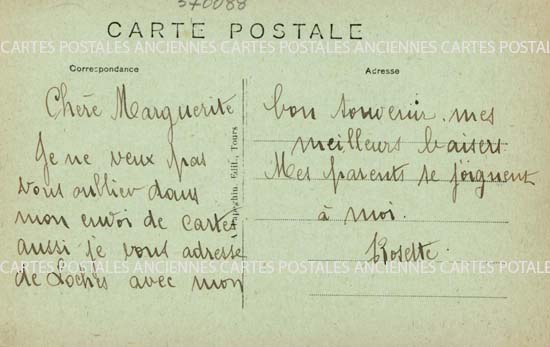 370088
CARTE POSTALE
CARTES POSTALES ANCIENNES CARTES POSTALES ANCIENNES CARTES POSTALES
Correspondance
Adresse
Chère Marguerite
Je ne veux pas
vous oublier dans
mon envoi de cartes
aussi je vous adresse
de Loches avec mon
Édit., Tours
bon souvenir mes
meilleurs baisers.
Mes parents se joignent
à moi.
Rosette.
CARTES POSTALES ANCIENNES CARTES POSTALES ANCIENNES CARTES POSTALES